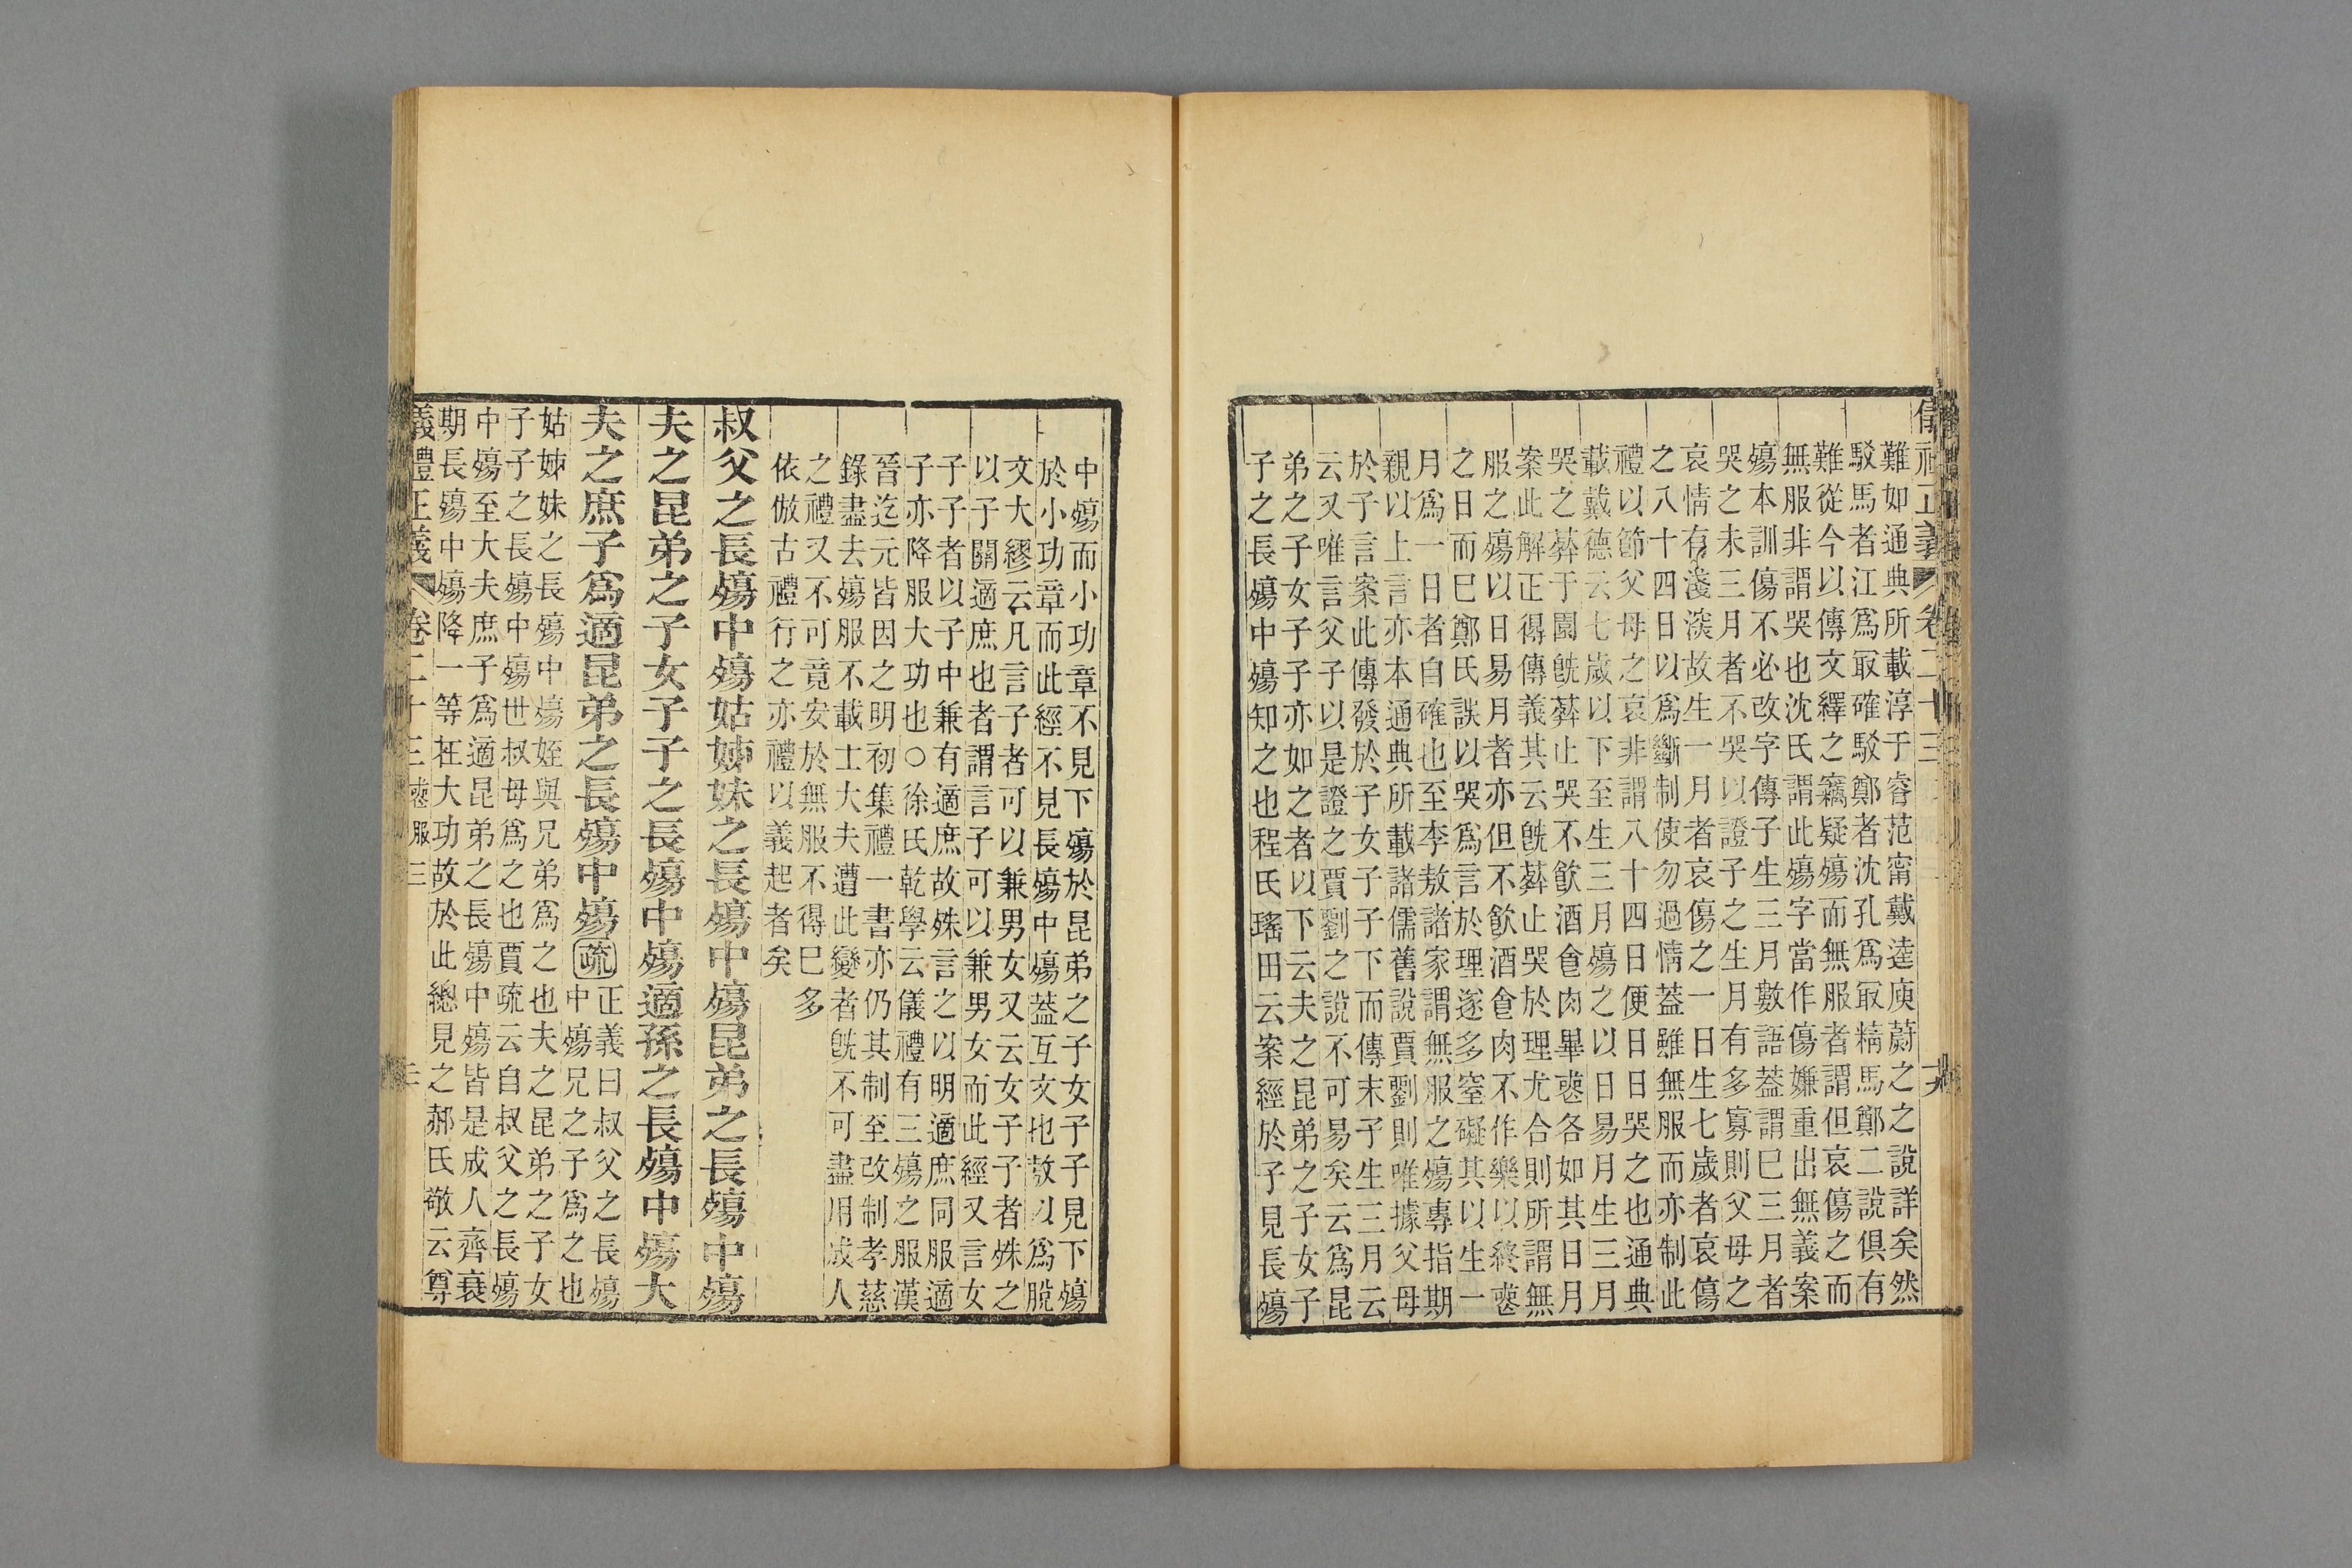 儀禮正義 卷二十三
難如通典所載淳于睿范甯戴逵庾蔚之之說詳矣然
駁馬者江爲㝡確駁鄭者沈孔爲㝡精馬鄭二說俱有
難從今以傳文繹之竊疑殤而無服者謂但哀傷之而
無服非謂哭也沈氏謂此殤字當作傷嫌重出無義案
殤本訓傷不必改字傳子生三月數語葢謂巳三月者
哭之未三月者不哭以證子之生月有多寡則父母之
哀情有淺深故生一月者哀傷之一日生七歲者哀傷
之八十四日以爲斷制使勿過情葢雖無服而亦制此
禮以節父母之哀非謂八十四日便日日哭之也通典
載戴德云七歲以下至生三月殤之以日易月生三月
哭之葬于園旣葬止哭不飮酒食肉畢喪各如其日月
案此解正得傳義其云旣葬止哭於理尤合則所謂無
服之殤以日易月者亦但不飮酒食肉不作樂以終喪
之日而巳鄭氏誤以哭爲言於理遂多窒礙其以生一
月爲一日者自確也至李敖諸家謂無服之殤專指期
親以上言亦本通典所載諸儒舊說賈劉則唯據父母
於子言案此傳發於子女子子下而傳末子生三月云
云又唯言父子以是證之賈劉之說不可易矣云爲昆
弟之子女子子亦如之者以下云夫之昆弟之子女子
子之長殤中殤知之也程氏瑤田云案經於子見長殤
中殤而小功章不見下殤於昆弟之子女子子見下殤
於小功章而此經不見長殤中殤葢互文也敖以爲脫
文大繆云凡言子者可以兼男女又云女子子者殊之
以子關適庶也者謂言子可以兼男女而此經又言女
子子者以子中兼有適庶故殊言之以明適庶同服適
子亦降服大功也○徐氏乾學云儀禮有三殤之服漢
晉迄元皆因之明初集禮一書亦仍其制至改制孝慈
錄盡去殤服不載士大夫遭此變者旣不可盡用成人
之禮又不可竟安於無服不得巳多
依倣古禮行之亦禮以義起者矣
叔父之長殤中殤姑姊妹之長殤中殤昆弟之長殤中殤
夫之昆弟之子女子子之長殤中殤適孫之長殤中殤大
夫之庶子爲適昆弟之長殤中殤疏正義曰叔父之長殤
中殤兄之子爲之也
姑姊妹之長殤中殤姪與兄弟爲之也夫之昆弟之子女
子子之長殤中殤世叔母爲之也賈疏云自叔父之長殤
中殤至大夫庶子爲適昆弟之長殤中殤皆是成人齊衰
期長殤中殤降一等在大功故於此總見之郝氏敬云尊
儀禮正義 卷二十三 喪服三